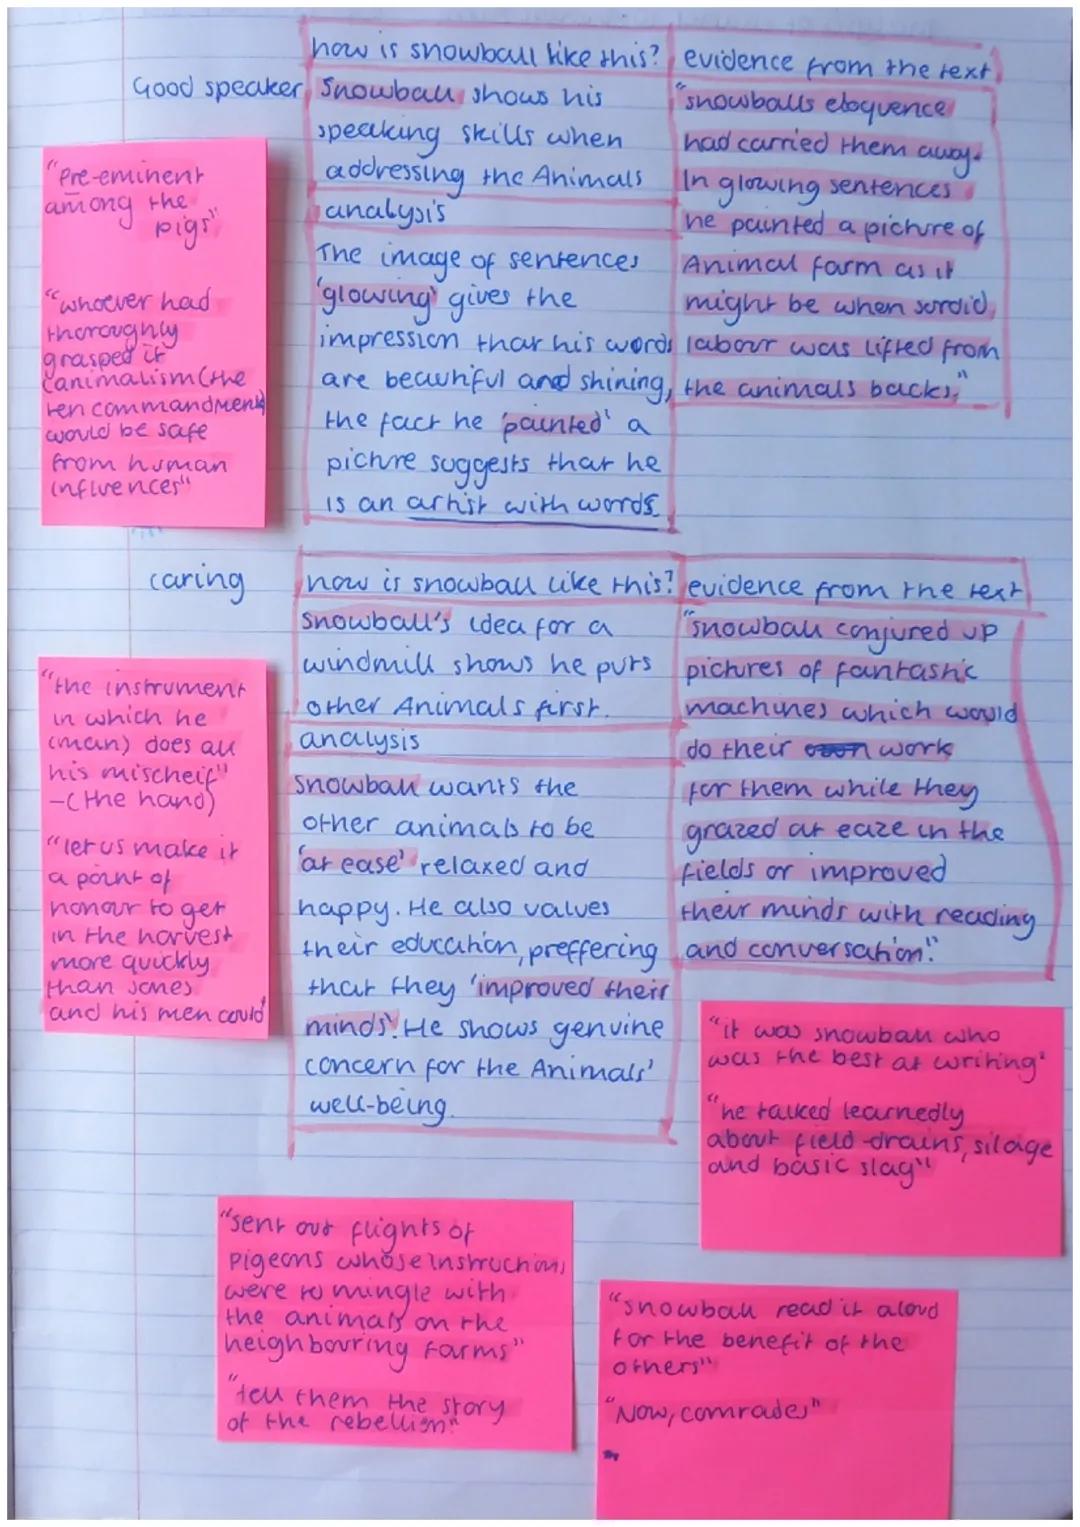 how is snowball like this?
evidence from the text
Good speaker
Snowball shows his
speaking skills when
addressing the Animals
analysis
The image of sentences
'glowing' gives the
impression that his words
are beautiful and shining,
the fact he 'painted' a
picture suggests that he
is an artist with words.
"snowballs eloquence
had carried them away.
In glowing sentences
he painted a picture of
Animal farm as it
might be when sordid
labour was lifted from
the animals backs,"
"Pre-eminent
among the
pigs"
"whoever had
thoroughly
grasped it
(animalism(the
ten commandments)
would be safe
from human
influences"
caring
how is snowball like this?
evidence from the text
Snowball's idea for a
windmill shows he puts
other Animals first.
analysis
Snowball wants the
other animals to be
'at ease' relaxed and
happy. He also values
their education, preffering
that they 'improved their
minds'. He shows genuine
concern for the Animals'
well-being.
"snowball conjured up
pictures of fantastic
machines which would
do their work
for them while they
grazed at eaze in the
fields or improved
their minds with reading
and conversation."
"the instrument
in which he
(man) does all
his mischeif"
-(the hand)
"let us make it
a point of
honour to get
in the harvest
more quickly
than Jones
and his men could"
"it was snowball who
was the best at writing"
"he talked learnedly
about field-drains, silage
and basic slag"
"sent out flights of
pigeons whose instructions
were to mingle with
the animals on the
neighbouring farms"
"tell them the story
of the rebellion"
"snowball read it aloud
for the benefit of the
others"
"Now, comrades"